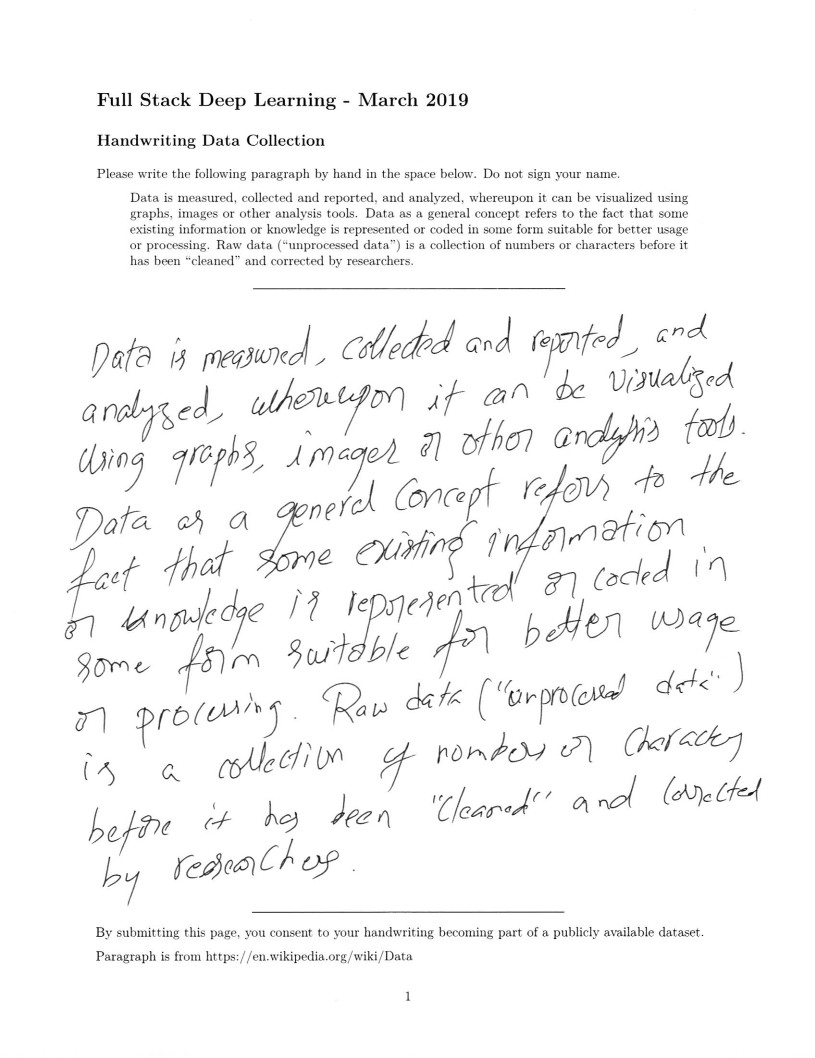 Full Stack Deep Learning - March 2019
Handwriting Data Collection
Please write the following paragraph by hand in the space below. Do not sign your name.
Data is measured, collected and reported, and analyzed, whereupon it can be visualized using
graphs, images or other analysis tools. Data as a general concept refers to the fact that some
existing information or knowledge is represented or coded in some form suitable for better usage
or processing. Raw data (“unprocessed data”) is a collection of numbers or characters before it
has been “cleaned” and corrected by researchers.
Data is measured, collected and reported, and
analyzed, whereupon it can be visualized
using graphs, images or other analysis tools.
Data as a general concept refers to the
fact that some existing information
or knowledge is represented or coded in
some form suitable for better usage
or processing. Raw data ("unprocessed data")
is a collection of numbers or characters
before it has been "cleaned" and corrected
by researchers.
By submitting this page, you consent to your handwriting becoming part of a publicly available dataset.
Paragraph is from https://en.wikipedia.org/wiki/Data
1